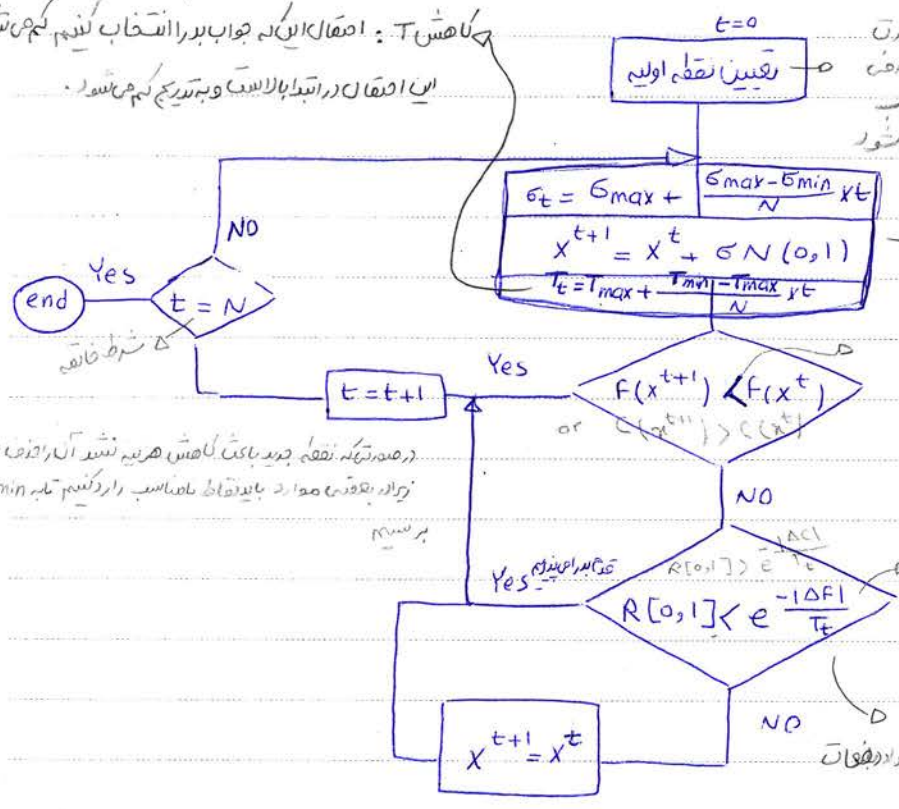 کاهش T : احتمال این که جواب بد را انتخاب کنیم کم می
این احتمال در ابتدا بالاست و به تدریج کم می شود.
t=0
تعیین نقطه اولیه
شود
σt = σmax + (σmax-σmin)/N xt
x^t+1 = x^t + σ N(0,1)
Tt = Tmax + (Tmin-Tmax)/N xt
NO
Yes
end
t = N
شرط خاتمه
t = t+1
Yes
F(x^t+1) < F(x^t)
or C(x^t+1) > C(x^t)
NO
در صورتی که نقطه جدید باعث کاهش هزینه نشد آن را
زیرا در بعضی موارد باید نقاط نامناسب را رد کنیم تا به min
برسیم
R[0,1] > e^-|ΔC|/Tt
Yes
R[0,1] < e^-|ΔF|/Tt
NO
x^t+1 = x^t